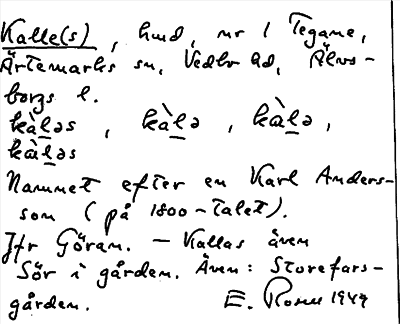 Kalle(s), hmd, nr 1 Tegane,
Ärtemarks sn, Vedbo hd, Älvs-
borgs l.
kàləs, kàlə, kàlə,
kàləs
Namnet efter en Karl Anders-
son (på 1800-talet).
Jfr Göran. – Kallas även
Sör i gården. Även: Storefars-
gården. E. 1949